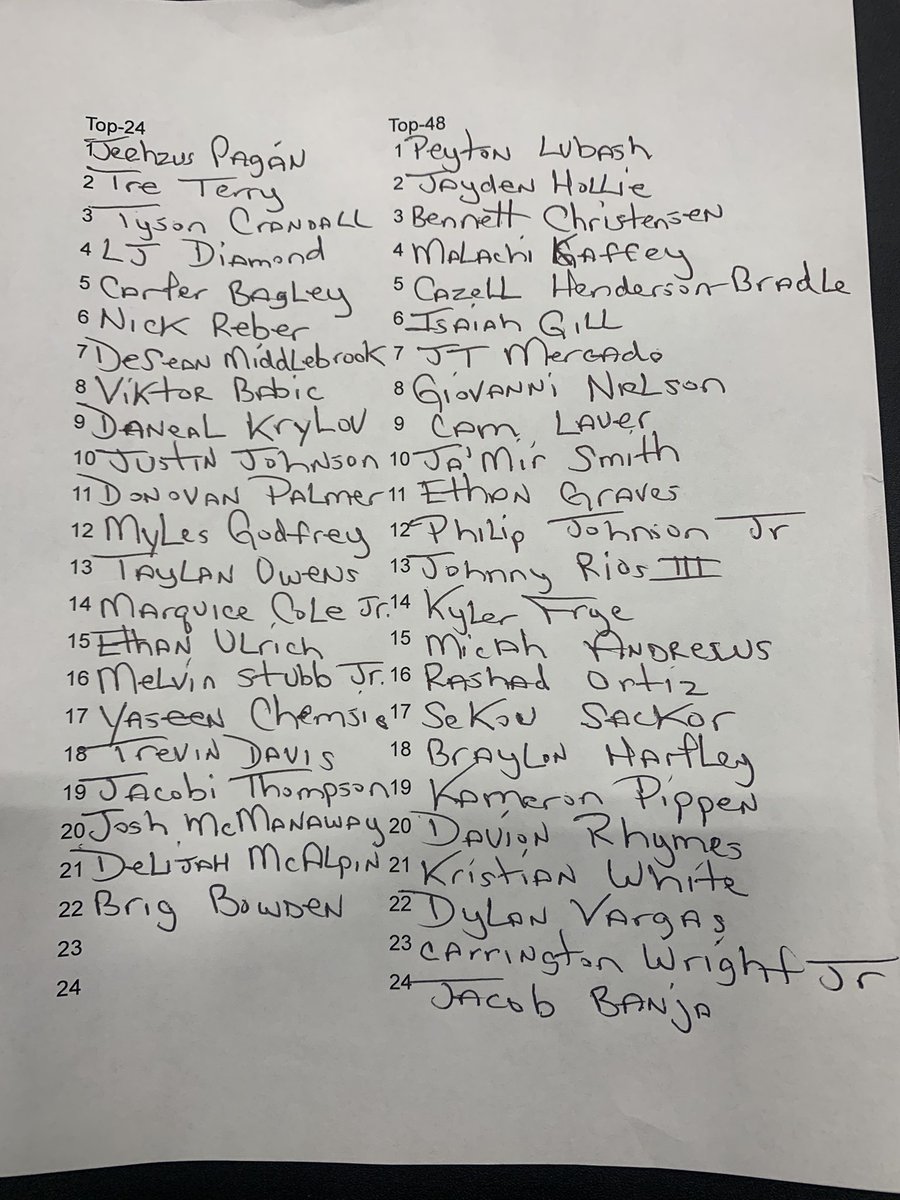 Top-24
1 Jeehzus Pagán
2 Tre Terry
3 Tyson Crandall
4 LJ Diamond
5 Carter Bagley
6 Nick Reber
7 DeSean Middlebrook
8 Viktor Babic
9 Daneal Krylov
10 Justin Johnson
11 Donovan Palmer
12 Myles Godfrey
13 Taylan Owens
14 Marquice Cole Jr.
15 Ethan Ulrich
16 Melvin Stubb Jr.
17 Yaseen Chemsie
18 Trevin Davis
19 Jacobi Thompson
20 Josh McManaway
21 Delijah McAlpin
22 Brig Bowden
23
24
Top-48
1 Peyton Lubash
2 Jayden Hollie
3 Bennett Christensen
4 Malachi Gaffey
5 Cazell Henderson-Bradle
6 Isaiah Gill
7 JT Mercado
8 Giovanni Nielson
9 Cam Lauer
10 Ja'Mir Smith
11 Ethan Graves
12 Philip Johnson Jr
13 Johnny Rios III
14 Kyler Frye
15 Micah Andrews
16 Rashad Ortiz
17 Sekou Sackor
18 Braylon Hartley
19 Kameron Pippen
20 Davion Rhymes
21 Kristian White
22 Dylan Vargas
23 Carrington Wright Jr
24 Jacob Banja